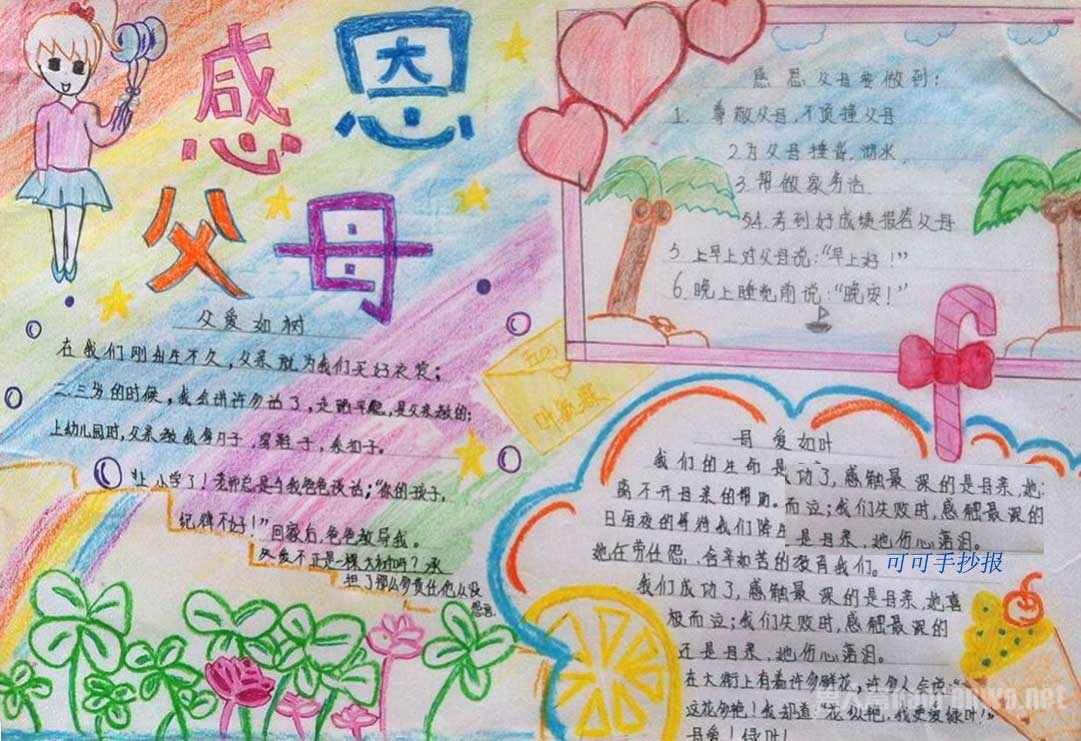 感恩
父母
父爱如树
在我们刚出生不久，父亲就为我们买好衣裳；
二、三岁的时候，我会讲许勿话了，走跑平稳，是父亲教的；
上幼儿园时，父亲教我剪月子，穿鞋子，系扣子。
上小学了！老师总是与我爸爸谈话；“你的孩子，
纪律不好！”回家后，爸爸教导我。
父爱不正是一棵大树吗？承
担了那么勿责任他从没
怨言
感恩父母要做到：
1. 尊敬父母，不顶撞父母
2为父母捶背，
3.帮做家务活
54.考到好成绩报答父母
5.上早上对父母说：“早上好！”
6.晚上睡觉前说：“晚安！”
母爱如叶
我们的生命是
离不开母亲的帮助。
日每夜的
她任劳任怨，含辛如苦的教育我们。
功了，感触最深的是母亲，她
而泣；我们失败时，感触最深的
是母亲，她伤心落泪。
可可手抄报
我们成功了，感触最深的是母亲，她喜
极而泣；我们失败时，感触最深的
还是母亲，她伤心落泪。
在大街上有着许勿鲜花，许勿人会说“
这花勿艳！我知道“花似艳，我更爱绿叶！”
母爱！绿叶！